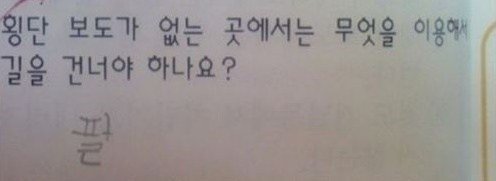 횡단 보도가 없는 곳에서는 무엇을 이용해서
길을 건너야 하나요?
팔